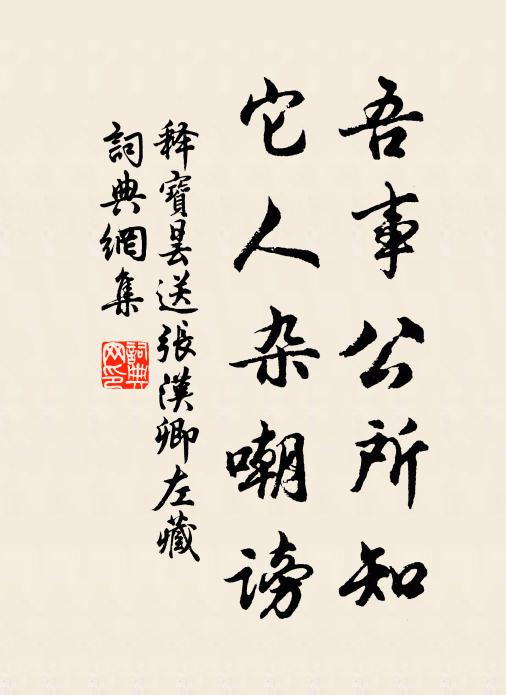 吾事公所知
它人杂嘲謗
释寶曇送張漢卿左藏
詞典網集
詞典网印